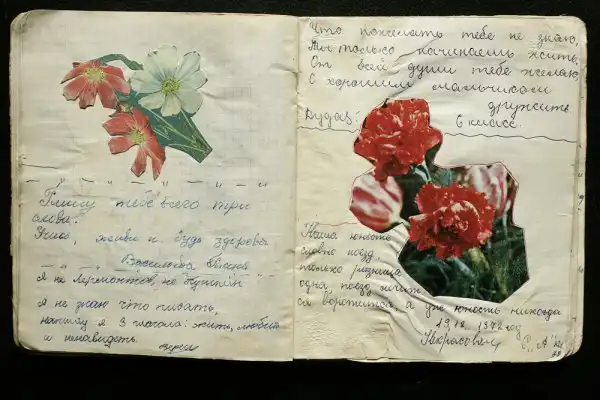 Пишу тебе всего три
слова:
живи и будь здорова
Васильева
я не Лермонтов, не Пушкин
я не знаю что писать,
напишу я 3 глагола: жить, любить
и ненавидеть.
Что пожелать тебе не знаю,
Ты только начинаешь жить,
От всей души тебе желаю,
С хорошим мальчиком
дружить
6 класс.
Наша юность
словно поезд,
только разница
одна поезд может
ся воротится, а уж юность никогда
19.12.1972 год
Некрасова
6 "А" кл